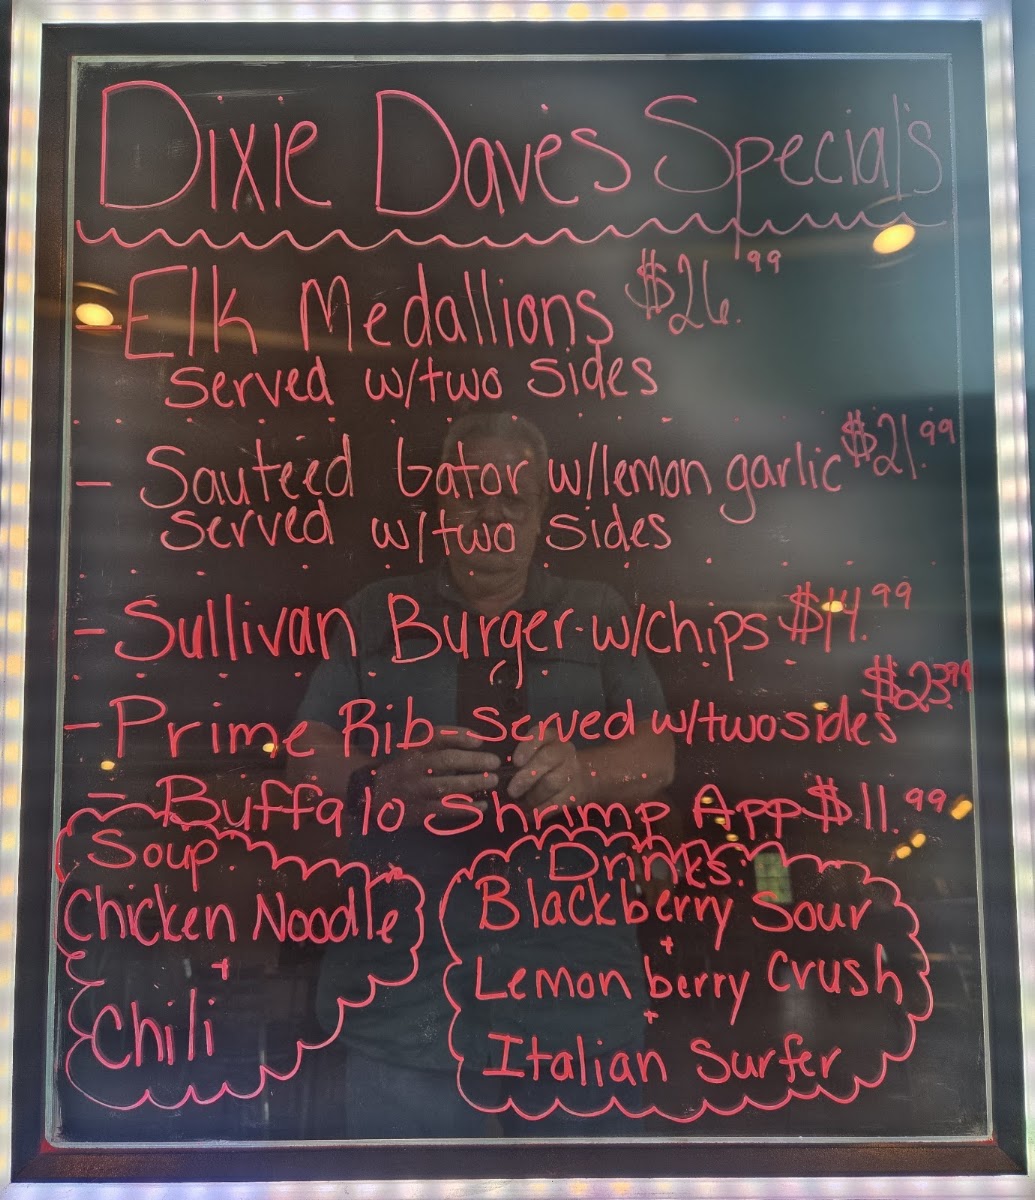 Dixie Dave's Special's
- Elk Medallions $26.99
served w/two sides
- Sauteed Gator w/lemon garlic $21.99
served w/two sides
- Sullivan Burger - w/chips $14.99
- Prime Rib - served w/two sides $23.99
- Buffalo Shrimp App $11.99
Soup:
Chicken Noodle
+
Chili
Drinks:
Blackberry Sour
+
Lemon berry Crush
+
Italian Surfer